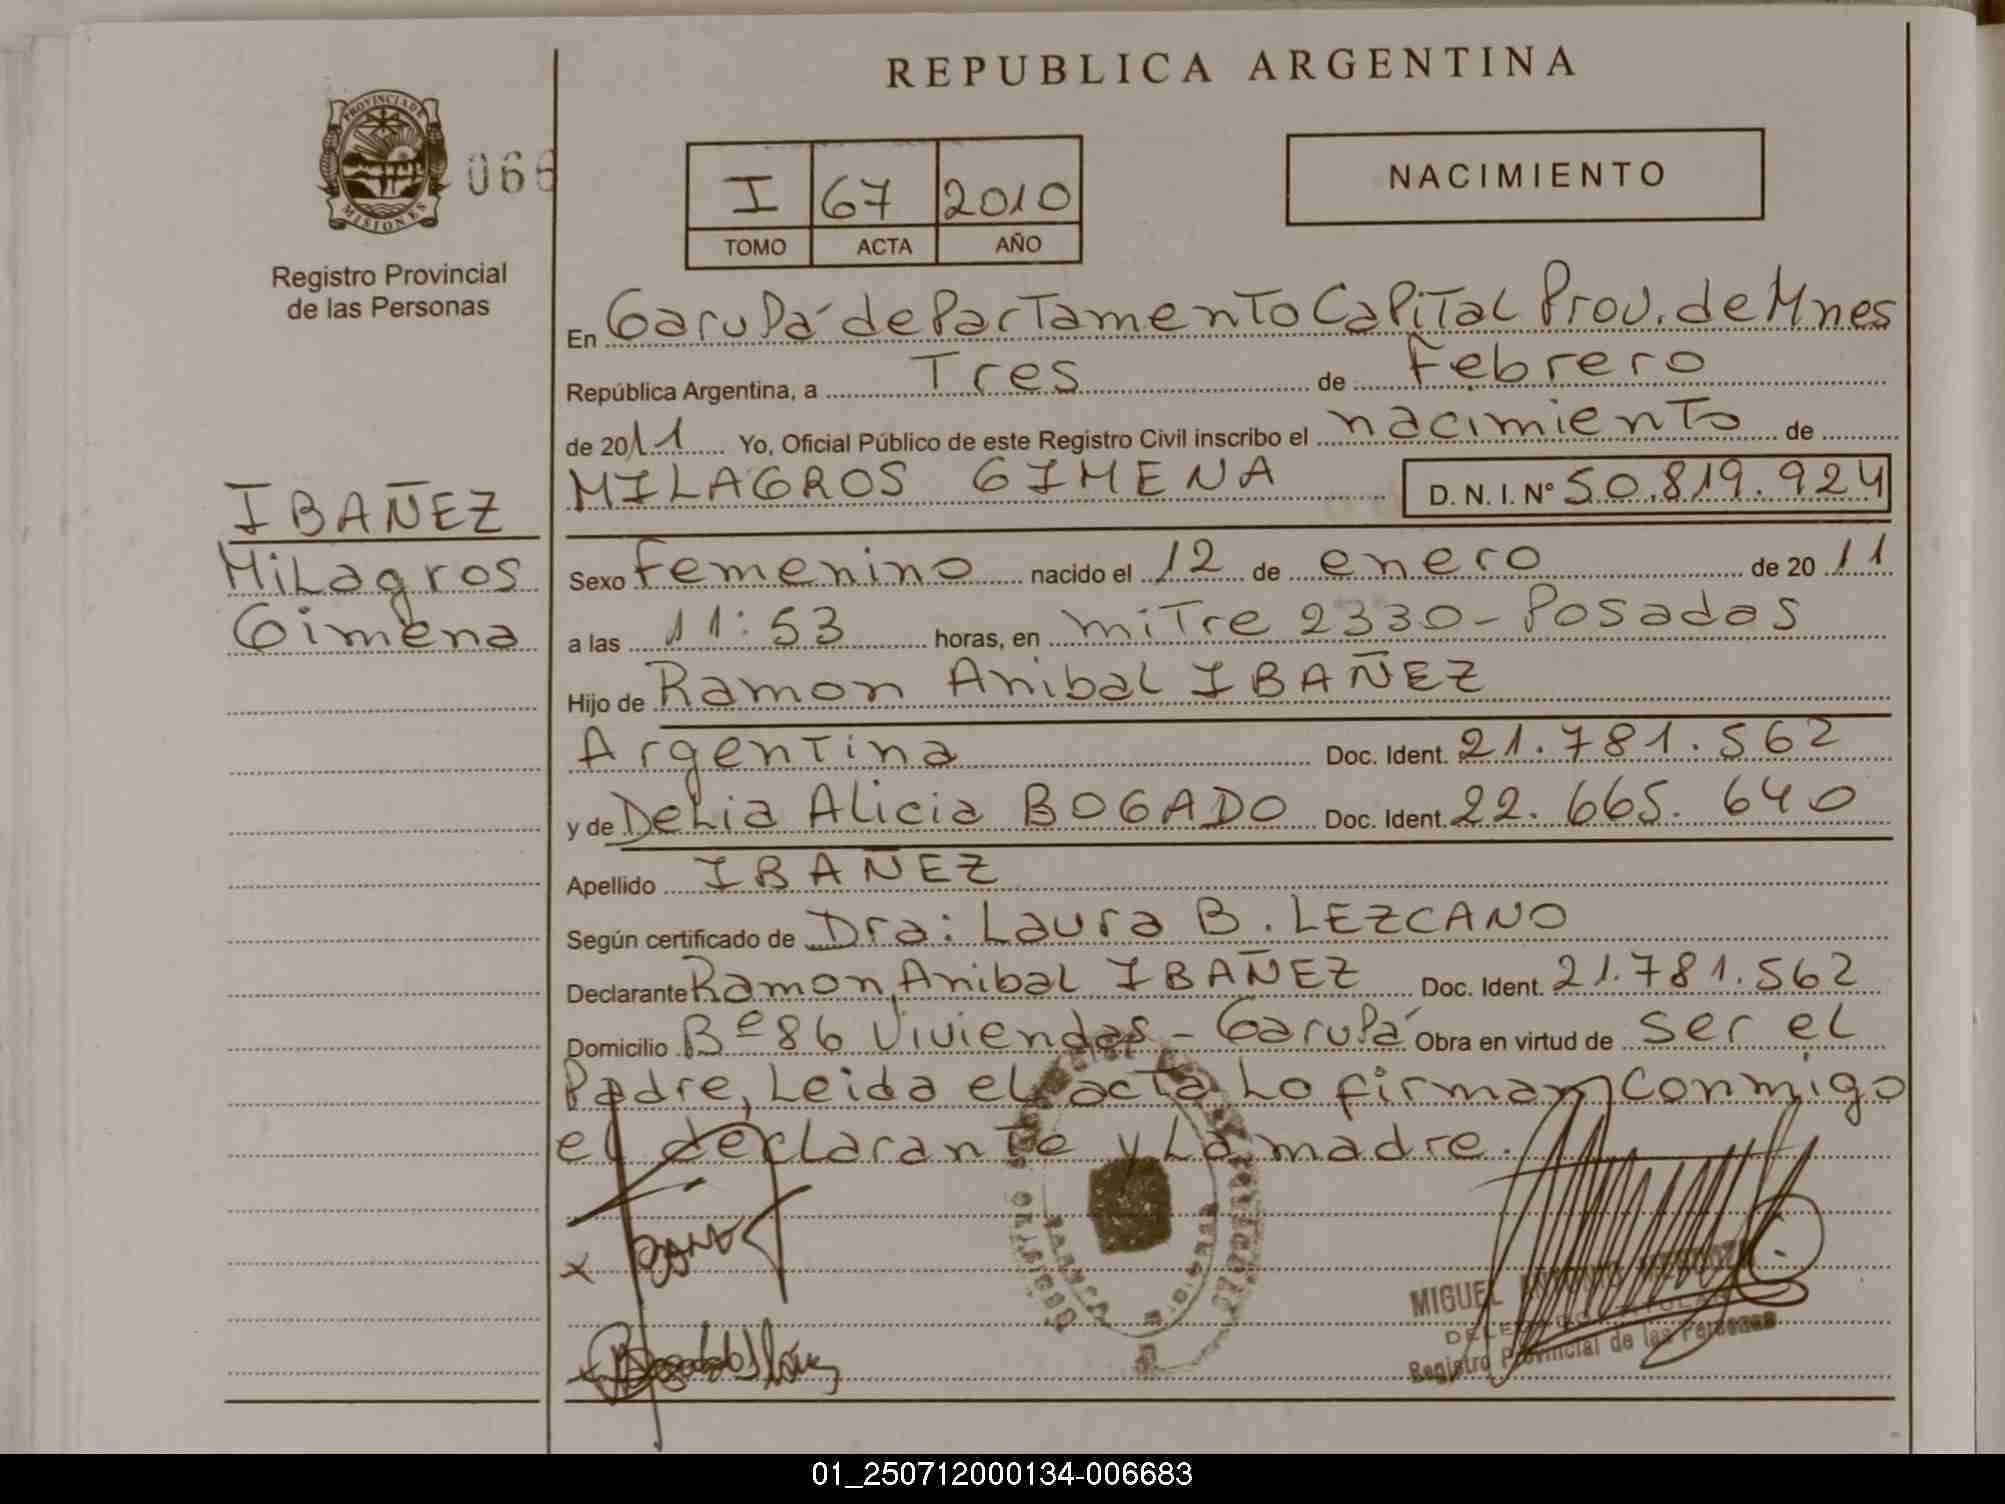 REPUBLICA ARGENTINA
PROVINCIA DE
MISIONES
066
Registro Provincial
de las Personas
I 67 2010
TOMO ACTA AÑO
NACIMIENTO
En Garupá departamento Capital Prov. de Mnes
República Argentina, a Tres de Febrero
de 2011 Yo, Oficial Público de este Registro Civil inscribo el nacimiento de
MILAGROS GIMENA D.N.I. Nº 50.819.924
IBAÑEZ
Milagros
Gimena
Sexo Femenino nacido el 12 de enero de 2011
a las 11:53 horas, en mitre 2330 - Posadas
Hijo de Ramon Anibal IBAÑEZ
Argentina Doc. Ident. 21.781.562
y de Delia Alicia BOGADO Doc. Ident. 22.665.640
Apellido IBAÑEZ
Según certificado de Dra: Laura B. LEZCANO
Declarante Ramon Anibal IBAÑEZ Doc. Ident. 21.781.562
Domicilio Bº 86 Viviendas - Garupá Obra en virtud de ser el
Padre, Leida el acta Lo firman conmigo
el declarante y La madre.
MIGUEL ANTONIO MENDOZA
DELEGADO TITULAR
Registro Provincial de las Personas
01_250712000134-006683